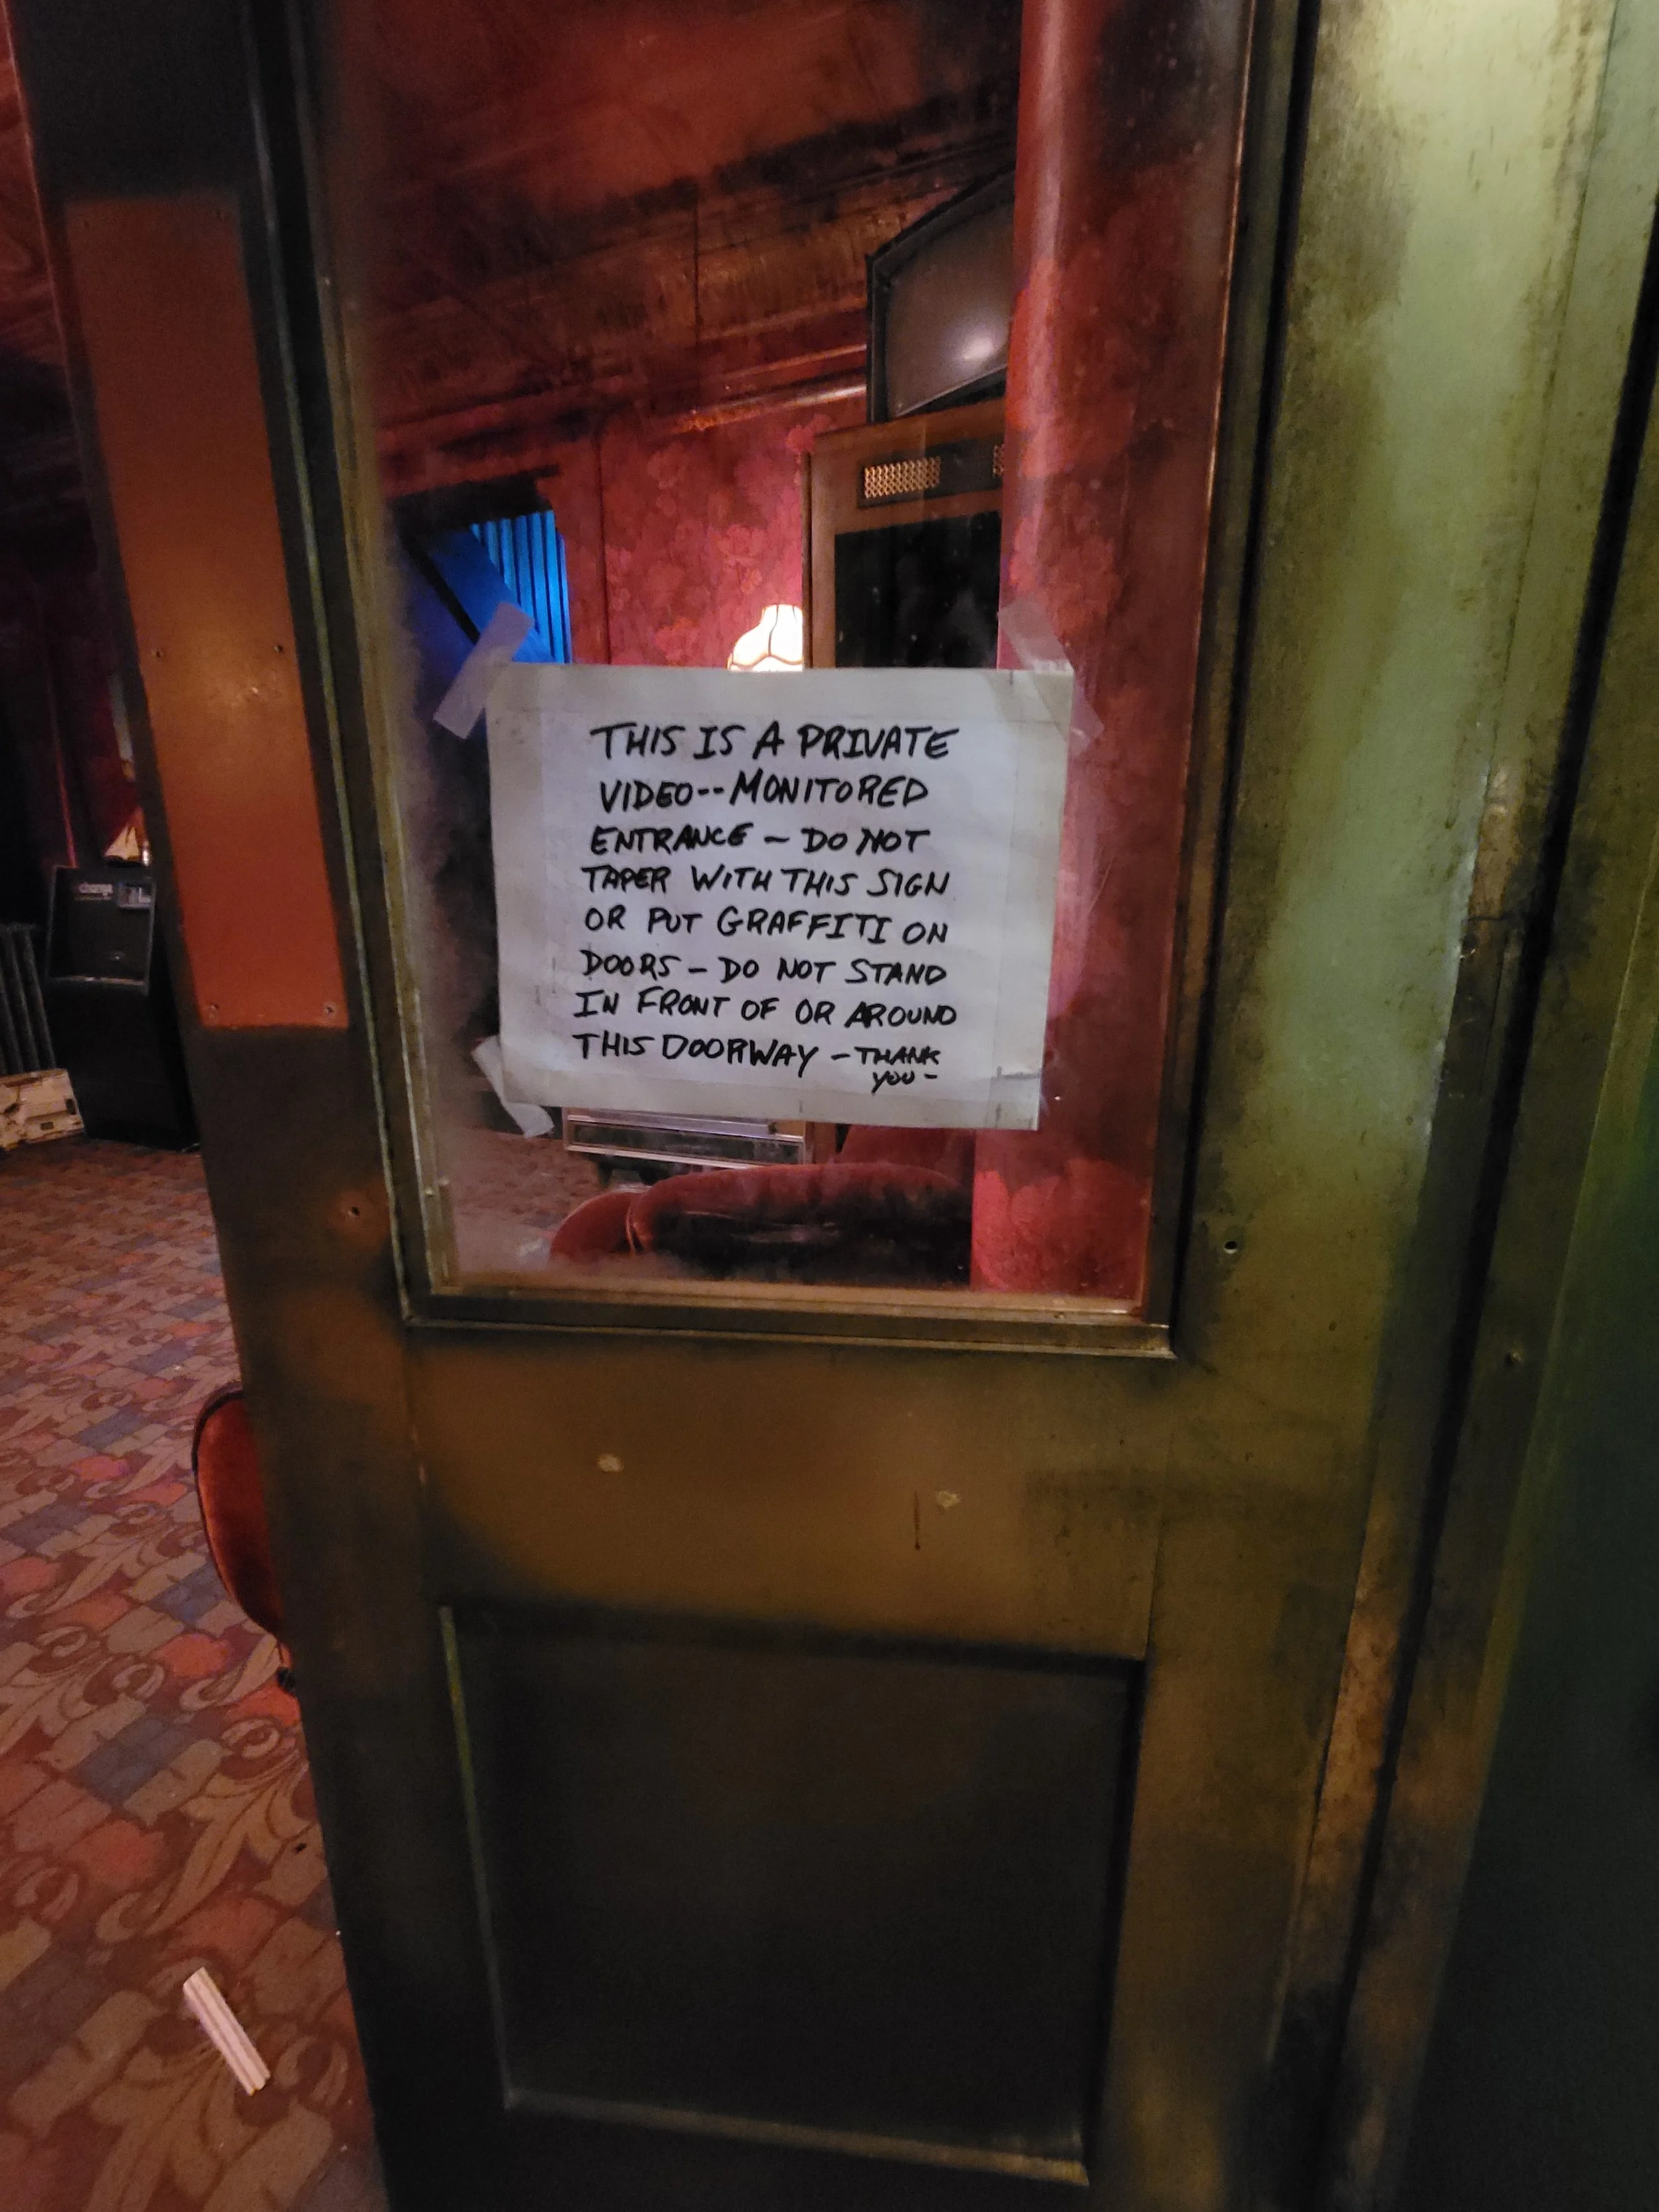 change
THIS IS A PRIVATE
VIDEO--MONITORED
ENTRANCE - DO NOT
TAPER WITH THIS SIGN
OR PUT GRAFFITI ON
DOORS - DO NOT STAND
IN FRONT OF OR AROUND
THIS DOORWAY - THANK
YOU -